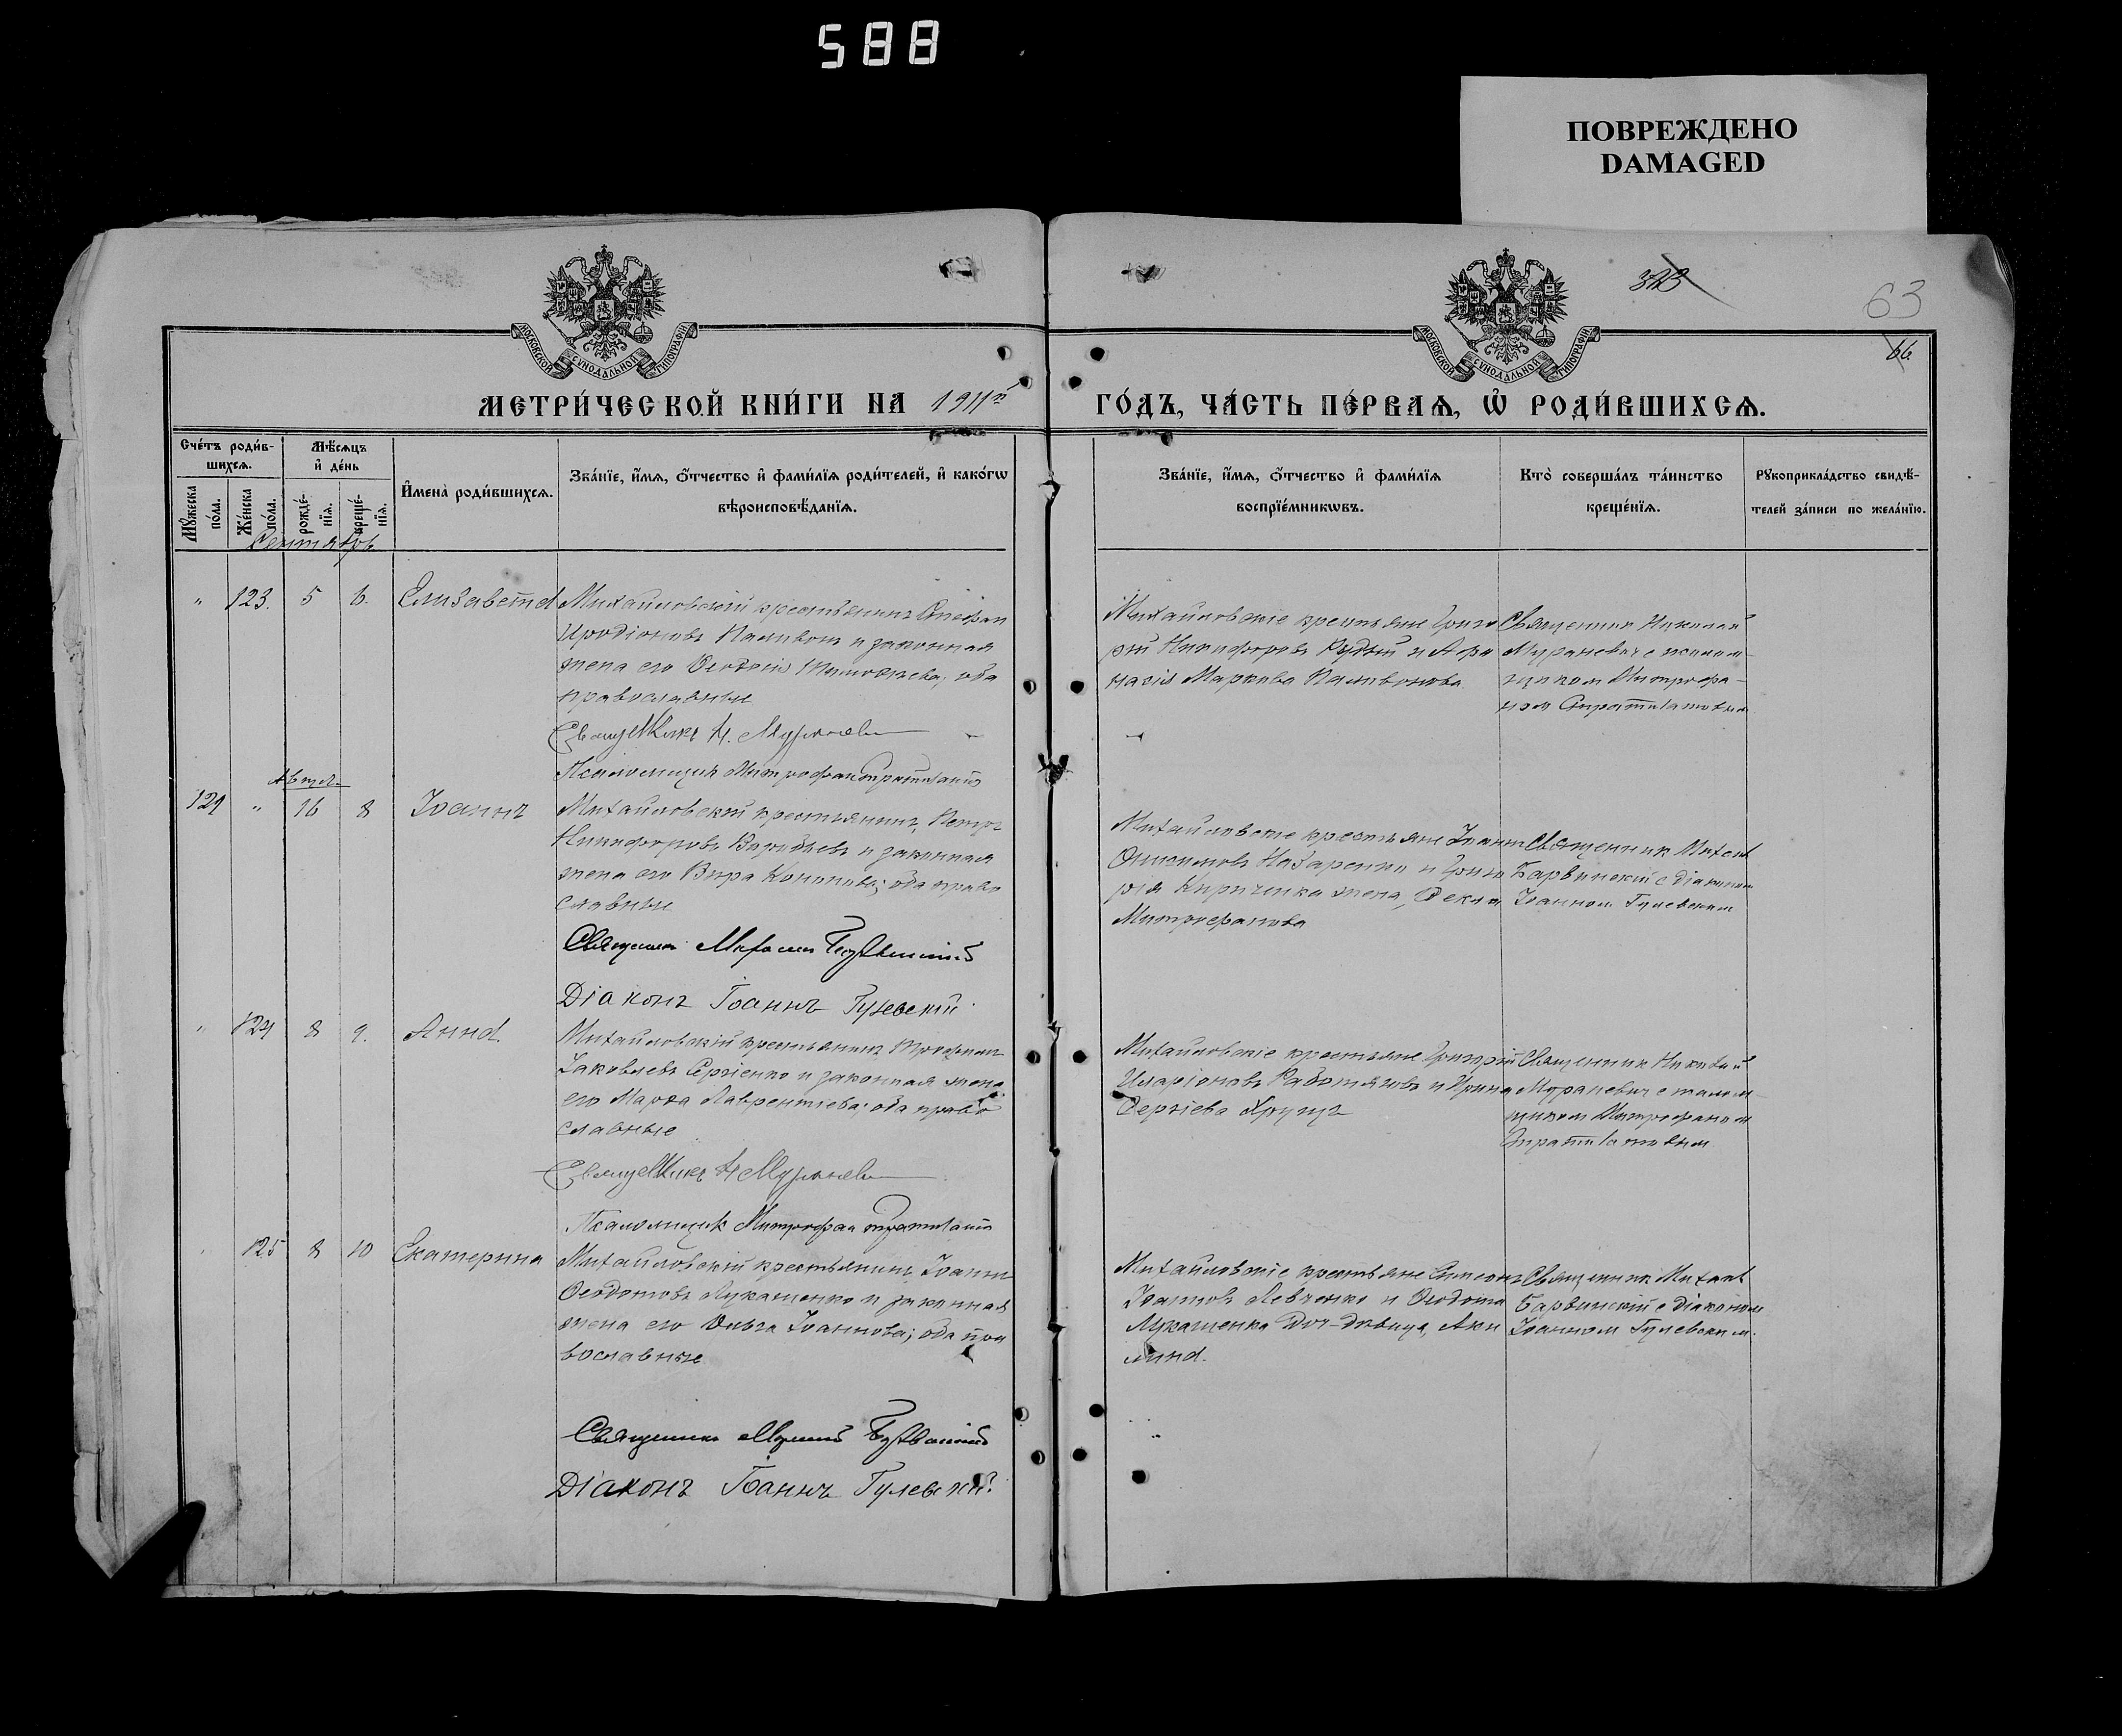 588
ПОВРЕЖДЕНО
DAMAGED
323
63
66
МОСКОВСКОЙ СѴНОДАЛЬНОЙ ТИПОГРАФІИ
МОСКОВСКОЙ СѴНОДАЛЬНОЙ ТИПОГРАФІИ
МЕТРИ́ЧЕСКОЙ КНИ́ГИ НА 1911й
ГО́ДЪ, ЧА́СТЬ ПЕ́РВАѦ, Ѡ҆ РОДИ́ВШИХСѦ.
Сче́тъ роди́в-
шихсѧ.
Мѣ́сѧцъ
и҆ де́нь
Мꙋ́жеска
по́ла.
Же́нска
по́ла.
рожде́-
нїѧ.
креще́-
нїѧ.
И҆мена̀ роди́вшихсѧ.
Зва́нїе, и҆́мѧ, ѻ҆́тчество и҆ фами́лїѧ роди́телей, и҆ како́гѡ
вѣроисповѣ́данїѧ.
Зва́нїе, и҆́мѧ, ѻ҆́тчество и҆ фами́лїѧ
воспрїе́мникѡвъ.
Кто̀ соверша́лъ та́инство
креще́нїѧ.
Рꙋкоприкла́дство свидѣ́-
телей за́писи по жела́нїю.
Сентябрь
" 123. 5 6. Елизавета
Михайловскій крестьянинъ Стефан
Иродіоновъ Паливот и законная
жена его Ѳеодосія Тимоѳѣева; оба
православные
Священникъ Н. Муран
Псаломщик Митрофан
Михайловскіе крестьяне Григо
рій Никифоровъ Рудый и Аѳа
насія Маркова
Священник Николай
Мураневич с псалом-
щиком Митрофа-
ном
Август
124 " 16 8 Іоаннъ
Михайловскій крестьянинъ, Петръ
Никифоровъ Воробьевъ и законная
жена его Вѣра Кононова; оба право
славные
Священникъ
Діаконъ Іоаннъ Гулевскій
Михайловскіе крестьяне Іоанн
Онисимовъ Назаренко и Григо
рія Кириченка жена, Ѳекла
Митрофанова
Священник Михаил
Барвинскій с діаконом
Іоанном Гулевским
" 124 8 9. Анна.
Михайловскій крестьянинъ Трофим
Іаковлевъ Сергіенко и законная жена
его Марѳа Лаврентіева; оба право
славные
Священникъ Н Муран
Псаломщик Митрофан
Михайловскіе крестьяне Григорій
Иларіоновъ Работяговъ и Ирина
Сергіева Хрущъ
Священник Николай
Мураневич с псалом-
щиком Митрофаном
125 8 10 Екатерина
Михайловскій крестьянинъ Іоаннъ
Ѳеодотовъ Лукашенко и законная
жена его Ольга Іоаннова; оба пра
вославные
Священникъ
Діаконъ Іоаннъ Гулевскій
Михайловскіе крестьяне Симеонъ
Іоанновъ Левченко и Ѳеодота
Лукашенка дочь-дѣвица, Аки
лина.
Священник Михаил
Барвинскій с діаконом
Іоанном Гулевским.